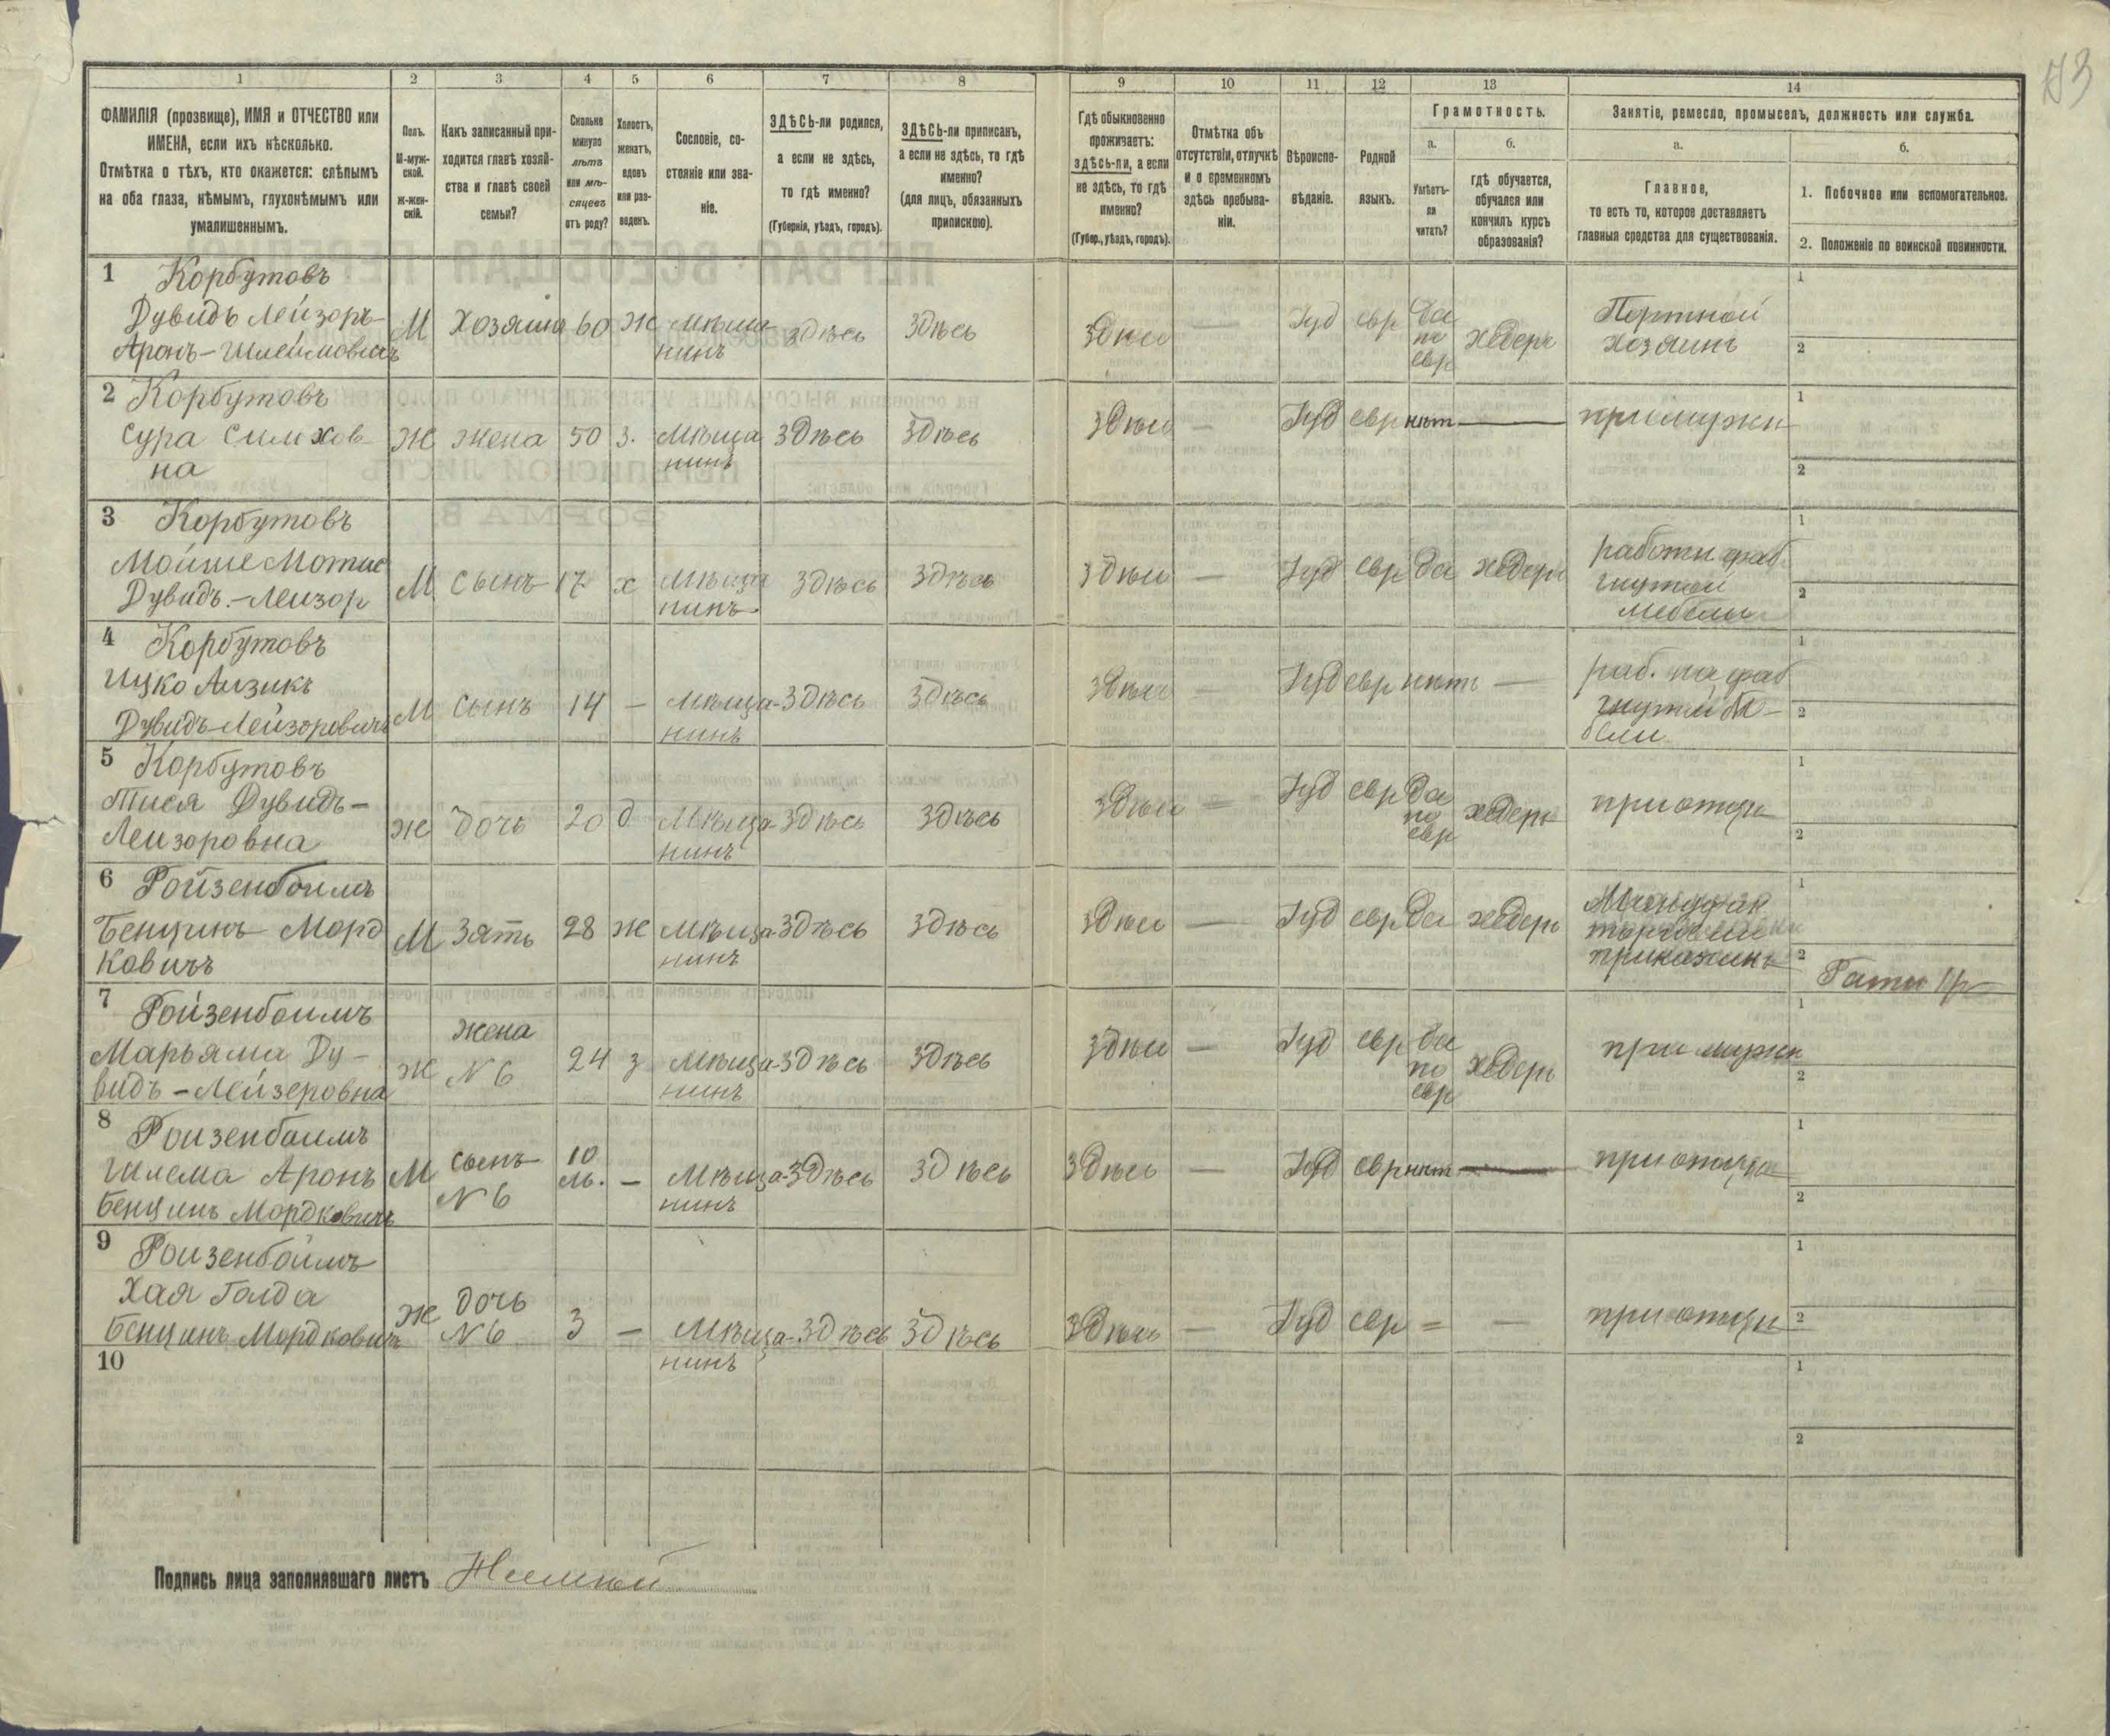 73
1 2 3 4 5 6 7 8 9 10 11 12 13 14
ФАМИЛІЯ (прозвище), ИМЯ и ОТЧЕСТВО или
ИМЕНА, если ихъ нѣсколько.
Отмѣтка о тѣхъ, кто окажется: слѣпымъ
на оба глаза, нѣмымъ, глухонѣмымъ или
умалишеннымъ.
Полъ.
М-муж-
ской.
Ж-жен-
скій.
Какъ записанный при-
ходится главѣ хозяй-
ства и главѣ своей
семьи?
Сколько
минуло
лѣтъ
или мѣ-
сяцевъ
отъ роду?
Холостъ,
женатъ,
вдовъ
или раз-
веденъ.
Сословіе, со-
стояніе или зва-
ніе.
ЗДѢСЬ-ли родился,
а если не здѣсь,
то гдѣ именно?
(Губернія, уѣздъ, городъ).
ЗДѢСЬ-ли приписанъ,
а если не здѣсь, то гдѣ
именно?
(для лицъ, обязанныхъ
припискою).
Гдѣ обыкновенно
проживаетъ:
ЗДѢСЬ-ли, а если
не здѣсь, то гдѣ
именно?
(Губер., уѣздъ, городъ).
Отмѣтка объ
отсутствіи, отлучкѣ
и о временномъ
здѣсь пребыва-
ніи.
Вѣроиспо-
вѣданіе.
Родной
языкъ.
Грамотность.
а.
Умѣетъ-
ли
читать?
б.
гдѣ обучается,
обучался или
кончилъ курсъ
образованія?
Занятіе, ремесло, промыселъ, должность или служба.
а.
Главное,
то есть то, которое доставляетъ
главныя средства для существованія.
б.
1. Побочное или вспомогательное.
2. Положеніе по воинской повинности.
1 Корбутовъ
Дувидъ Лейзоръ-
Аронъ-Шлеймовичъ
М Хозяинъ 60 Ж Мѣща
нинъ
здѣсь здѣсь здѣсь — Іуд евр Да
по
евр
хедеръ
Портной
хозяинъ
1
2
2 Корбутовъ
Сура Симхов-
на
Ж жена 50 з. Мѣща
нинъ
здѣсь здѣсь здѣсь — Іуд евр нѣт —
при мужѣ
1
2
3 Корбутовъ
Мойше Мотие
Дувидъ-Лейзор
М сынъ 17 х Мѣща
нинъ
здѣсь здѣсь здѣсь — Іуд евр да хедеръ
фаб
гнутой
мебели
1
2
4 Корбутовъ
Ицко Аизикъ
Дувидъ-Лейзоровичъ
М сынъ 14 — Мѣща-
нинъ
здѣсь здѣсь здѣсь — Іуд евр нѣтъ —
раб. на фаб
1
2
5 Корбутовъ
Дувидъ-
Леизоровна
Ж дочь 20 д Мѣща-
нинъ
здѣсь здѣсь здѣсь = Іуд евр да
по
евр
хедеръ
при отцѣ
1
2
6 Ройзенбоимъ
Бенцинъ Морд
ковичъ
М Зять 28 Ж Мѣща-
нинъ
здѣсь здѣсь здѣсь — Іуд евр да хедеръ
1
2
7 Ройзенбоимъ
Марьяма Ду-
видъ-Лейзеровна
Ж жена
№ 6
24 з Мѣща-
нинъ
здѣсь здѣсь здѣсь — Іуд евр да
по
евр
хедеръ
при мужѣ
1
2
8 Роизенбаимъ
Шлема Аронъ
Бенцинъ Мордковичъ
М сынъ
№ 6
10
м. — Мѣща-
нинъ
здѣсь здѣсь здѣсь — Іуд евр нѣт —
при отцѣ
1
2
9 Роизенбоимъ
Хая Голда
Бенцинъ Мордкович
Ж дочь
№ 6
3 — Мѣща-
нинъ
здѣсь здѣсь здѣсь — Іуд евр = —
при отцѣ
1
2
10
1
2
Подпись лица заполнявшаго листъ